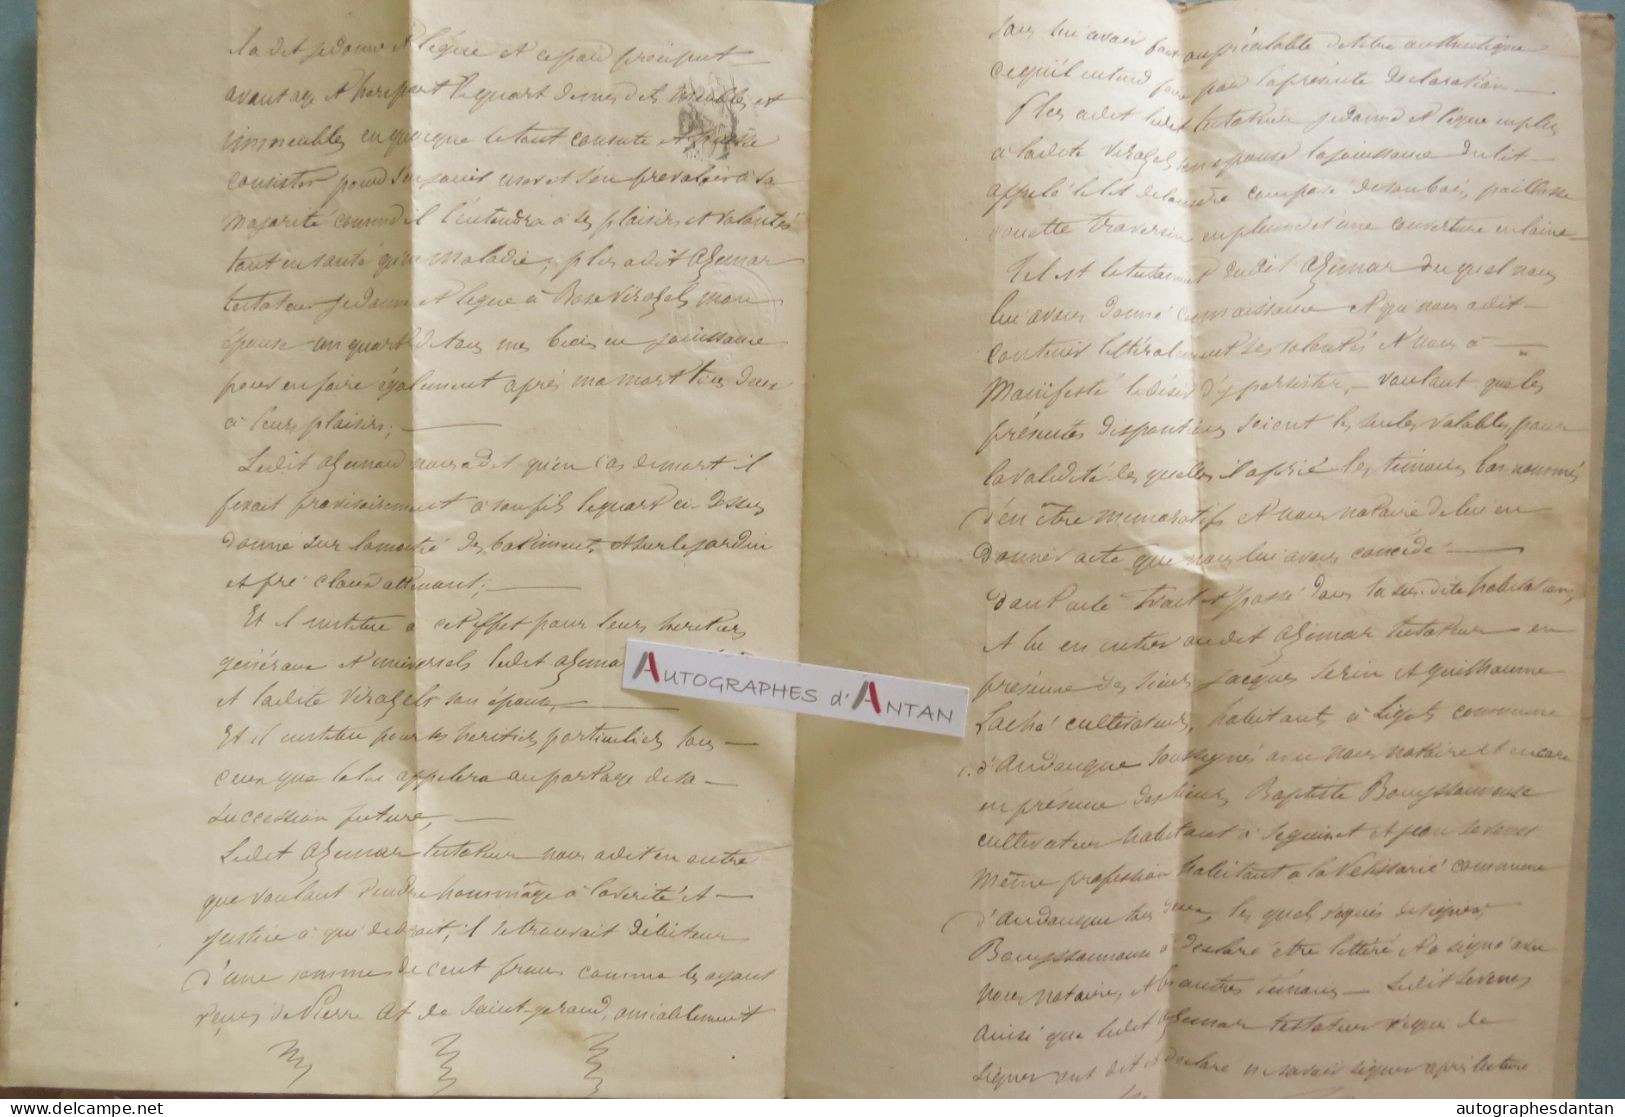 a dit je donne et lègue et ce par préciput
avantage et hors part le quart de mes dits meubles et
immeubles en quoi que le tout consiste et puisse
consister pour d'en jouir user et s'en prévaloir à sa
majorité comme il l'entendra à ses plaisirs et volontés
tant en santé qu'en maladie; plus a dit Azemar
testateur je donne et lègue à Rose Virazels mon
épouse un quart de tous mes biens en jouissance
pour en faire également après ma mort tous deux
à leurs plaisirs;
Ledit Azemar nous a dit qu'en cas de mort il
ferait provisoirement à son fils le quart ci-dessus
donné sur la moitié des batiments et sur le jardin
et pré claux attenant;
Et il institue à cet effet pour leurs héritiers
généraux et universels ledit Azemar
et ladite Virazels son épouse,
Et il institue pour ses héritiers particuliers tous
ceux que la loi appelera au partage de sa
succession future,
Ledit Azemar testateur nous a dit en outre
que voulant rendre hommage à la vérité et
justice à qui de droit, il se trouvait débiteur
d'une somme de cent francs comme les ayant
reçus de Pierre de Saint-geraud, amiablement
sans lui avoir fait au préalable de titre authentique
ce qu'il entend faire par la présente déclaration
Plus a dit ledit testateur je donne et lègue en plus
à ladite Virazels son épouse la jouissance du lit
appelé le lit de composé de son bois, paillasse
couette traversin en plume et une couverture en laine
Tel est le testament dudit Azemar duquel nous
lui avons donné connaissance et qui nous a dit
contenir littéralement ses volontés et nous a
manifesté le désir d'y persister, voulant que les
présentes dispositions soient les seules valables, pour
la validité desquelles il a prié les témoins bas nommés
d'en être mémoratifs et nous notaire de lui en
donner acte que nous lui avons concédé
Dont acte fait et passé dans la susdite habitation,
et lu en entier audit Azemar testateur en
présence des sieurs Jacques Serin et Guillaume
Laché cultivateurs, habitants à Ligots commune
d'Audouque soussignés avec nous notaire et encore
en présence des sieurs Baptiste Bouyssounouse
cultivateur habitant à Seguinet et Jean
même profession habitant à la commune
d'Audouque tous deux, les quels requis de signer,
Bouyssounouse a déclaré être lettré et a signé avec
nous notaire, et les autres témoins Ledit
ainsi que ledit Azemar testateur requis de
signer ont dit et déclaré ne savoir signer après lecture
AUTOGRAPHES d'ANTAN
autographesdantan